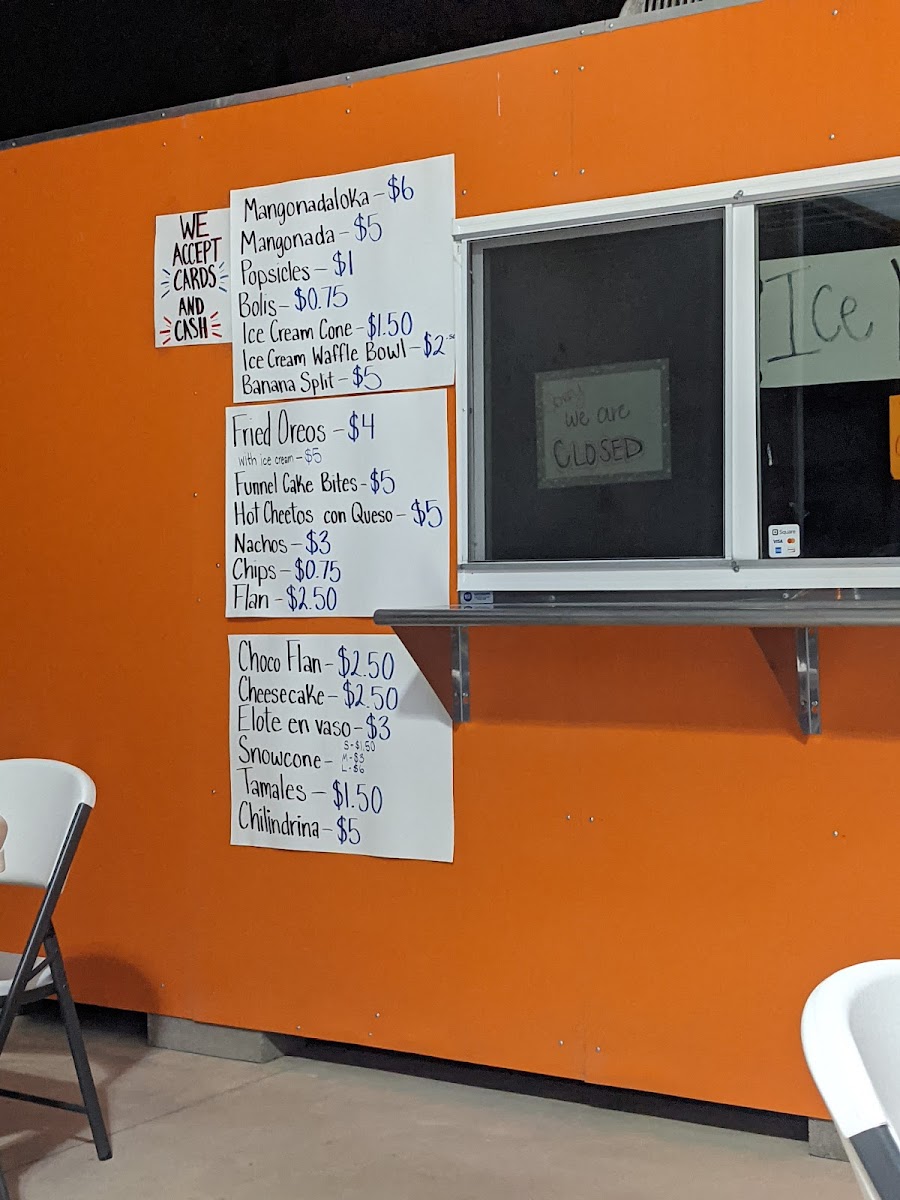 WE
ACCEPT
CARDS
AND
CASH
Mangonadaloka - $6
Mangonada - $5
Popsicles - $1
Bolis - $0.75
Ice Cream Cone - $1.50
Ice Cream Waffle Bowl - $2.50
Banana Split - $5
Fried Oreos - $4
with ice cream - $5
Funnel Cake Bites - $5
Hot Cheetos con Queso - $5
Nachos - $3
Chips - $0.75
Flan - $2.50
Choco Flan - $2.50
Cheesecake - $2.50
Elote en vaso - $3
Snowcone - S - $1.50
M - $3
L - $6
Tamales - $1.50
Chilindrina - $5
we are
CLOSED
Ice
Square
VISA